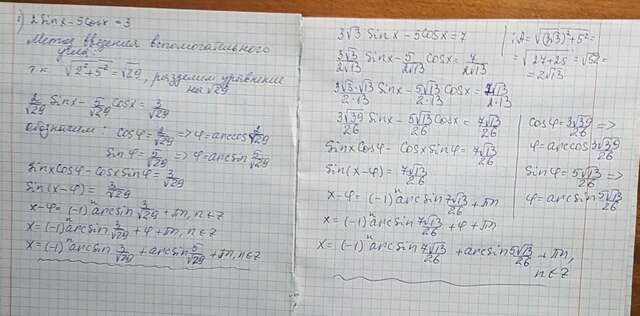 1) 2sinx - 5cosx = 3
Метод введения вспомогательного
угла:
√(2²+5²) = √29, разделим уравнение
на √29
2/√29 sinx - 5/√29 cosx = 3/√29
Обозначим: cosφ = 2/√29 => φ = arccos 2/√29
sinφ = 5/√29 => φ = arcsin 5/√29
sinx cosφ - cosx sinφ = 3/√29
sin(x-φ) = 3/√29
x-φ = (-1)ⁿ arcsin 3/√29 + πn, n∈Z
x = (-1)ⁿ arcsin 3/√29 + φ + πn, n∈Z
x = (-1)ⁿ arcsin 3/√29 + arcsin 5/√29 + πn, n∈Z
3√3 sinx - 5cosx = 7
3√3/2√13 sinx - 5/2√13 cosx = 7/2√13
3√3·√13/2·13 sinx - 5√13/2·13 cosx = 7√13/2·13
3√39/26 sinx - 5√13/26 cosx = 7√13/26
sinx cosφ - cosx sinφ = 7√13/26
sin(x-φ) = 7√13/26
x-φ = (-1)ⁿ arcsin 7√13/26 + πn
x = (-1)ⁿ arcsin 7√13/26 + φ + πn
x = (-1)ⁿ arcsin 7√13/26 + arcsin 5√13/26 + πn,
n∈Z
= √((3√3)²+5²) =
= √(27+25) = √52 =
= 2√13
cosφ = 3√39/26 =>
φ = arccos 3√39/26
sinφ = 5√13/26 =>
φ = arcsin 5√13/26